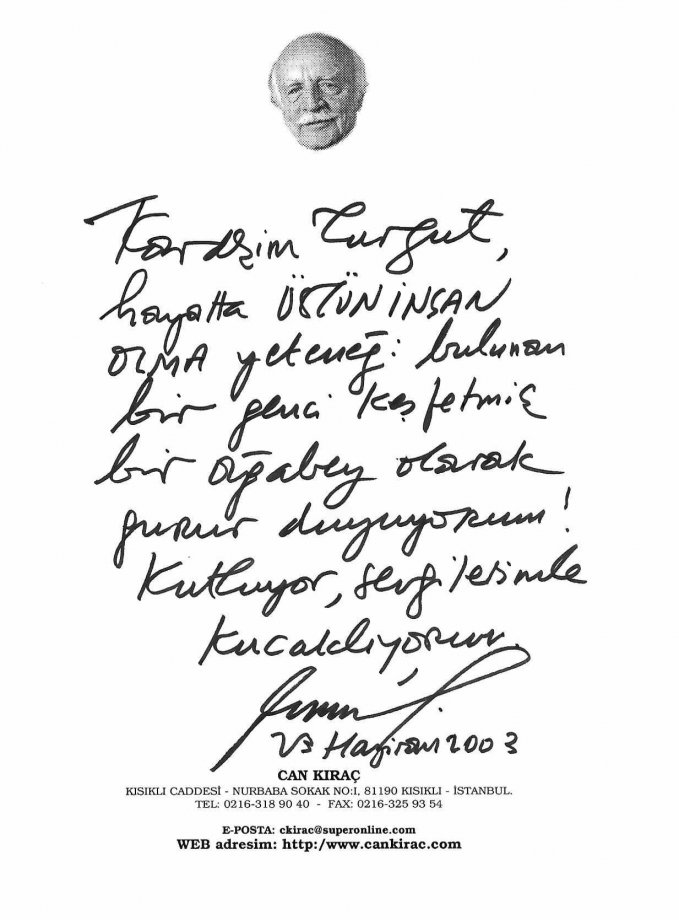 Kardeşim Turgut,
hayatta ÜSTÜN İNSAN
OLMA yeteneği bulunan
bir genci keşfetmiş
bir ağabey olarak
gurur duyuyorum!
Kutluyor, sevgilerimle
kucaklıyorum.
23 Haziran 2003
CAN KIRAÇ
KISIKLI CADDESİ - NURBABA SOKAK NO:1, 81190 KISIKLI - İSTANBUL.
TEL: 0216-318 90 40 - FAX: 0216-325 93 54
E-POSTA: ckirac@superonline.com
WEB adresim: http:/www.cankirac.com